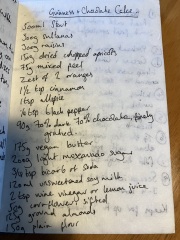 Guinness + Chocolate Cake
500ml Stout
300g sultanas
300g raisins
150g dried chopped apricots
75g mixed peel
zest of 2 oranges
1½ tsp cinnamon
1 tsp allspice
½ tsp black pepper
90g 70% dark 70% chocolate, finely
grated
175g vegan butter
200g light muscovado sugar
¾ tsp bicarb of soda
120ml unsweetened soy milk
2 tsp wine vinegar or lemon juice
cornflower, sifted
ground almonds
plain flour